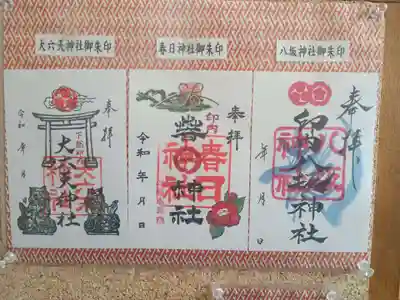 大六天神社御朱印
奉拝
大六天神社
令和 年 月
春日神社御朱印
奉拝
印内
春日
神社
令和 年 月 日
八坂神社御朱印
奉拝
印内八坂神社
年 月 日